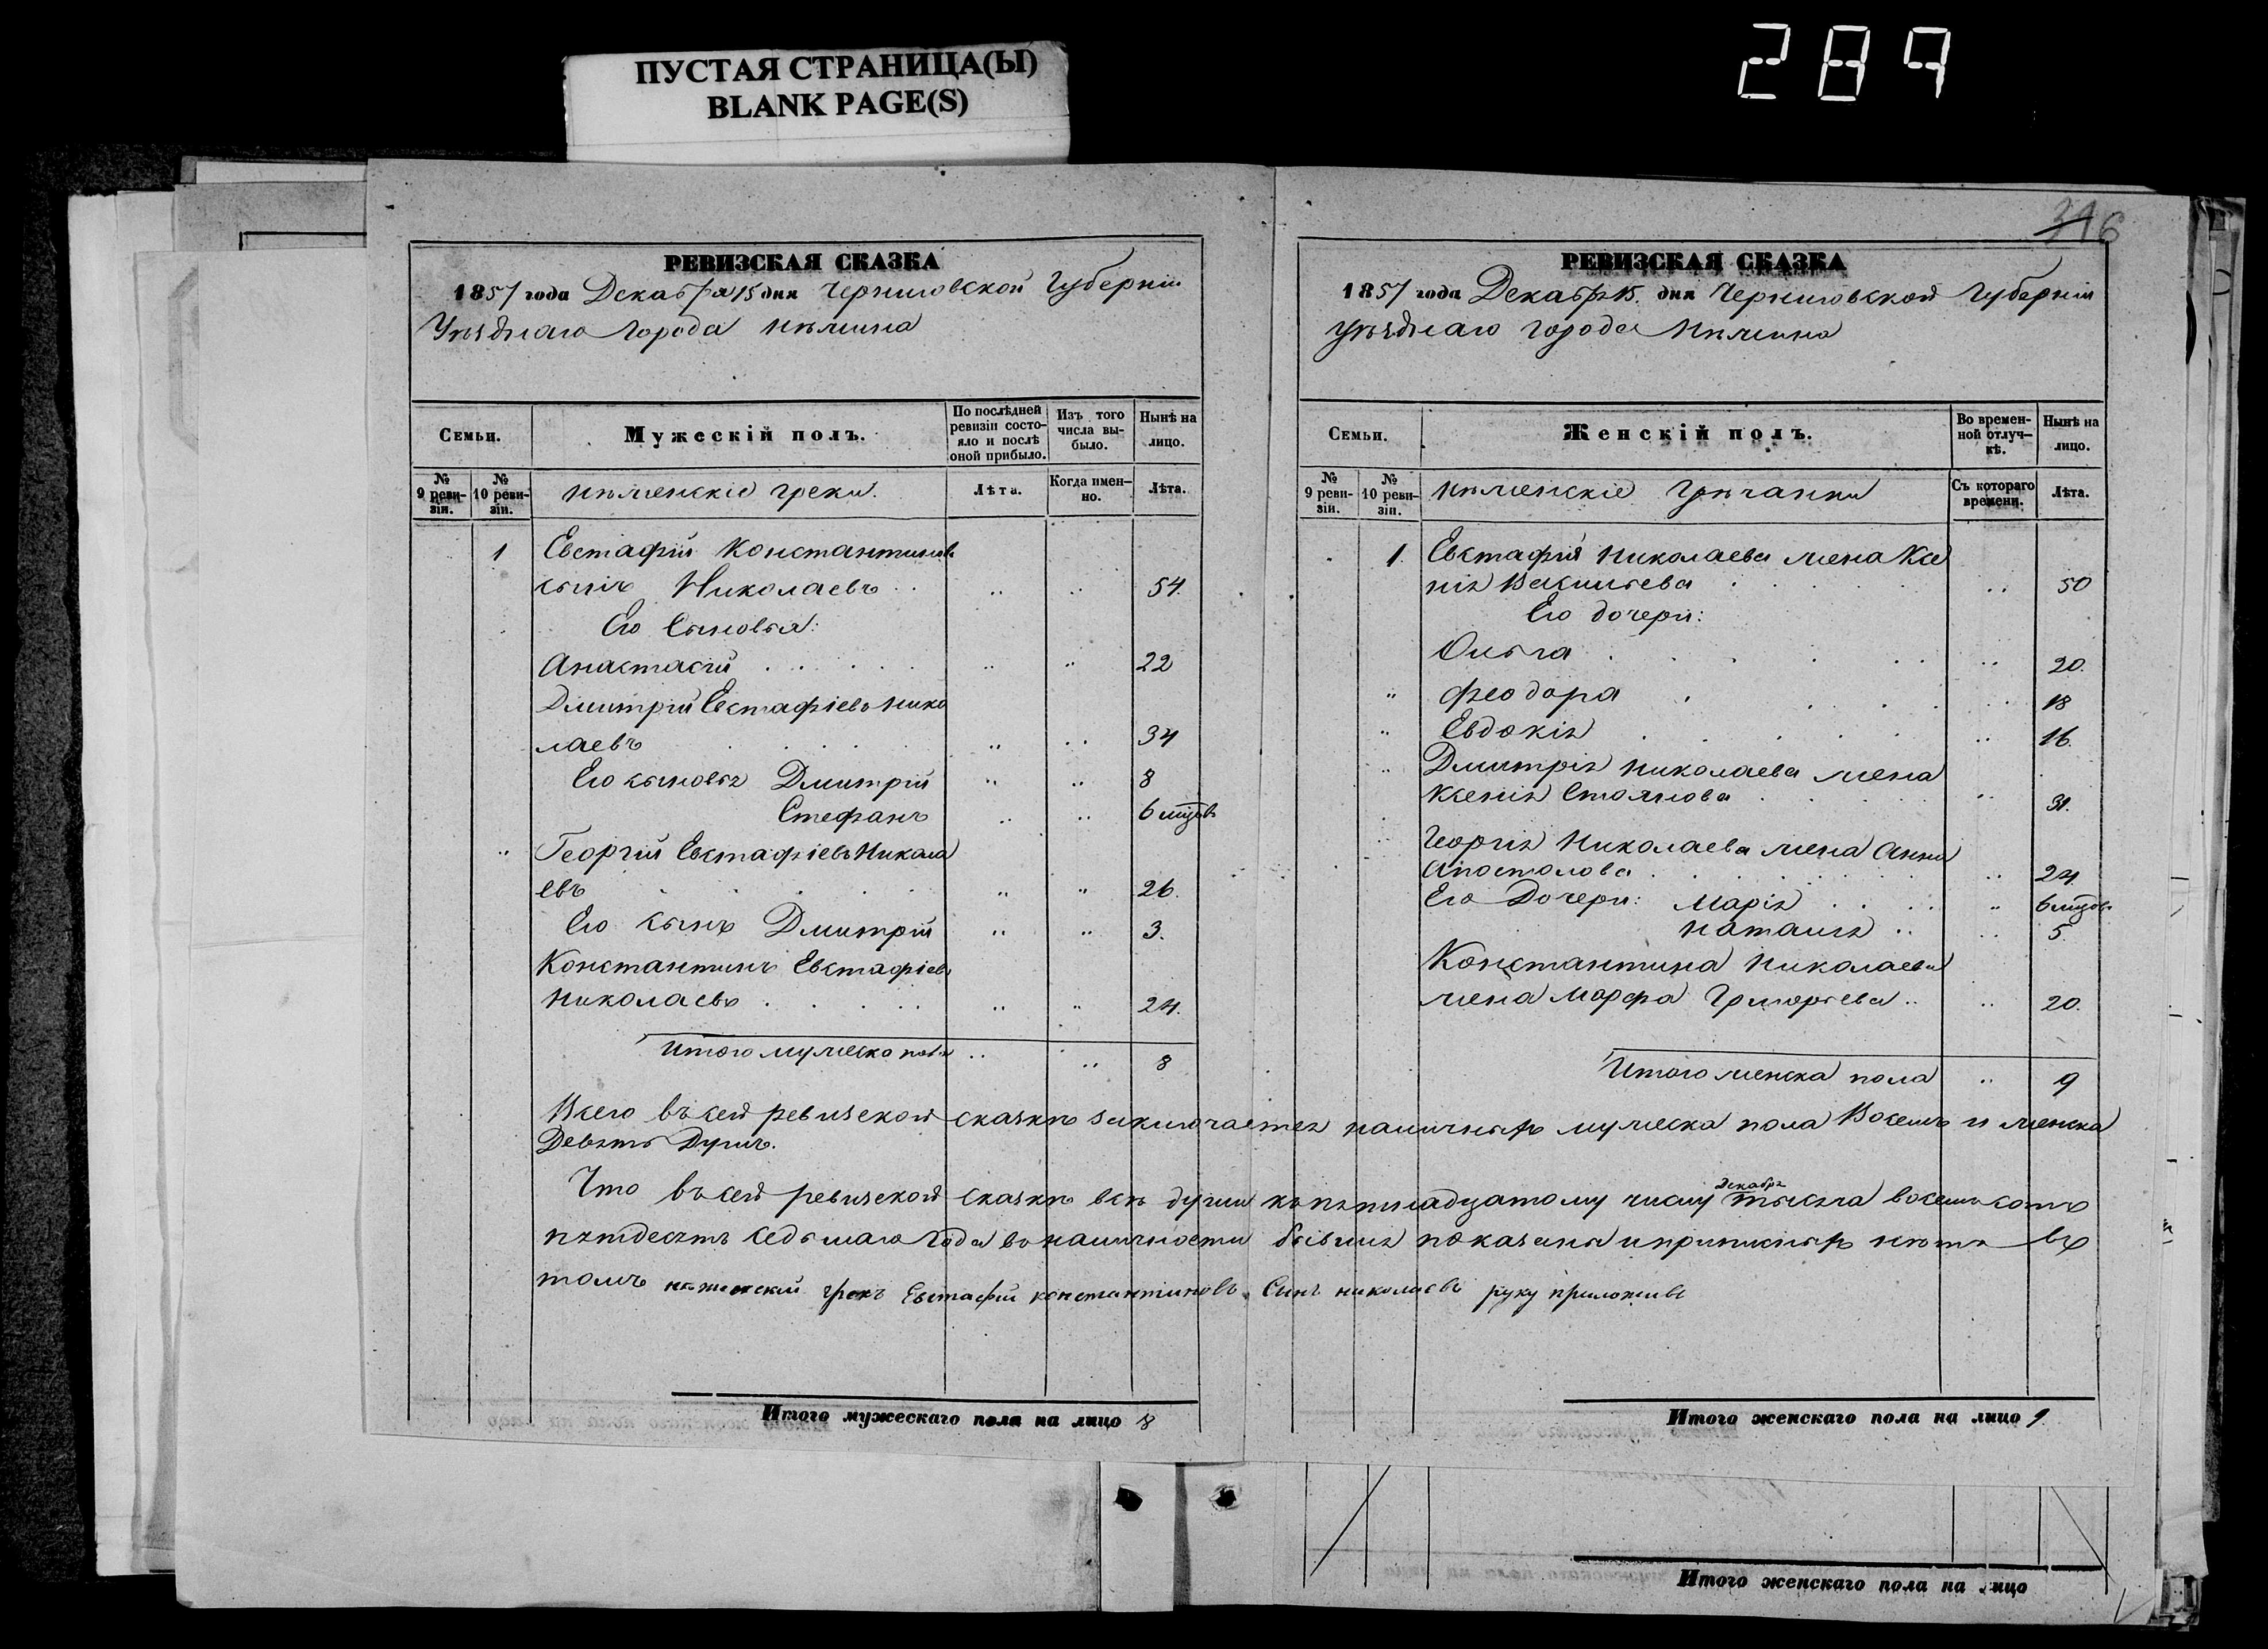 ПУСТАЯ СТРАНИЦА(Ы)
BLANK PAGE(S)
289
РЕВИЗСКАЯ СКАЗКА
1857 года Декабря 15 дня Черниговской Губерніи
Уѣзднаго Города Нѣжина
Семьи.
Мужескій полъ.
По послѣдней ревизіи состо-
яло и послѣ оной прибыло.
Изъ того числа вы-
было.
Нынѣ на лицо.
№ 9 реви-
зіи.
№ 10 реви-
зіи.
Нѣженскіе греки.
Лѣта.
Когда имен-
но.
Лѣта.
1 Евстафій Константиновъ
сынъ Николаевъ 54.
Его Сыновья:
Анастасій 22
Дмитрій Евстафіевъ Нико
лаевъ 34
Его сыновья Дмитрій 8
Стефанъ 6 мцовъ
Георгій Евстафіевъ Никола
евъ 26.
Его сынъ Дмитрій 3.
Константинъ Евстафіевъ
Николаевъ 24.
Итого мужеска пола 8
316
РЕВИЗСКАЯ СКАЗКА
1857 года Декабря 15. дня Черниговской Губерніи
Уѣзднаго города Нѣжина
Семьи.
Женскій полъ.
Во времен-
ной отлуч-
кѣ.
Нынѣ на лицо.
№ 9 реви-
зіи.
№ 10 реви-
зіи.
Нѣженскіе Гречанки
Съ котораго времени.
Лѣта.
1. Евстафія Николаева жена Ксе
нія Васильева 50
Его дочери:
Ольга 20.
Феодора 18
Евдокія 16.
Дмитрія Николаева жена
Ксенія Стоянова 31.
Георгія Николаева жена Анна
Апостолова 24.
Его Дочери: Марія 6 мцовъ
Наталія 5.
Константина Николаева
жена Марфа Григорьева 20.
Итого женска пола 9
Всего въ сей ревизской сказкѣ заключается наличныхъ мужеска пола Восемь и женска
Девять Душъ.
Что въ сей ревизской сказкѣ всѣ души къ пятнадцатому числу Декабря тысяча восемьсотъ
пятдесятъ седьмаго Года въ наличности бывшія показаны и прописныхъ нѣтъ въ
томъ нѣженскій грекъ Евстафій константиновъ Синъ николаевъ руку приложивъ
Итого мужескаго пола на лицо 8
Итого женскаго пола на лицо 9
Итого женскаго пола на лицо